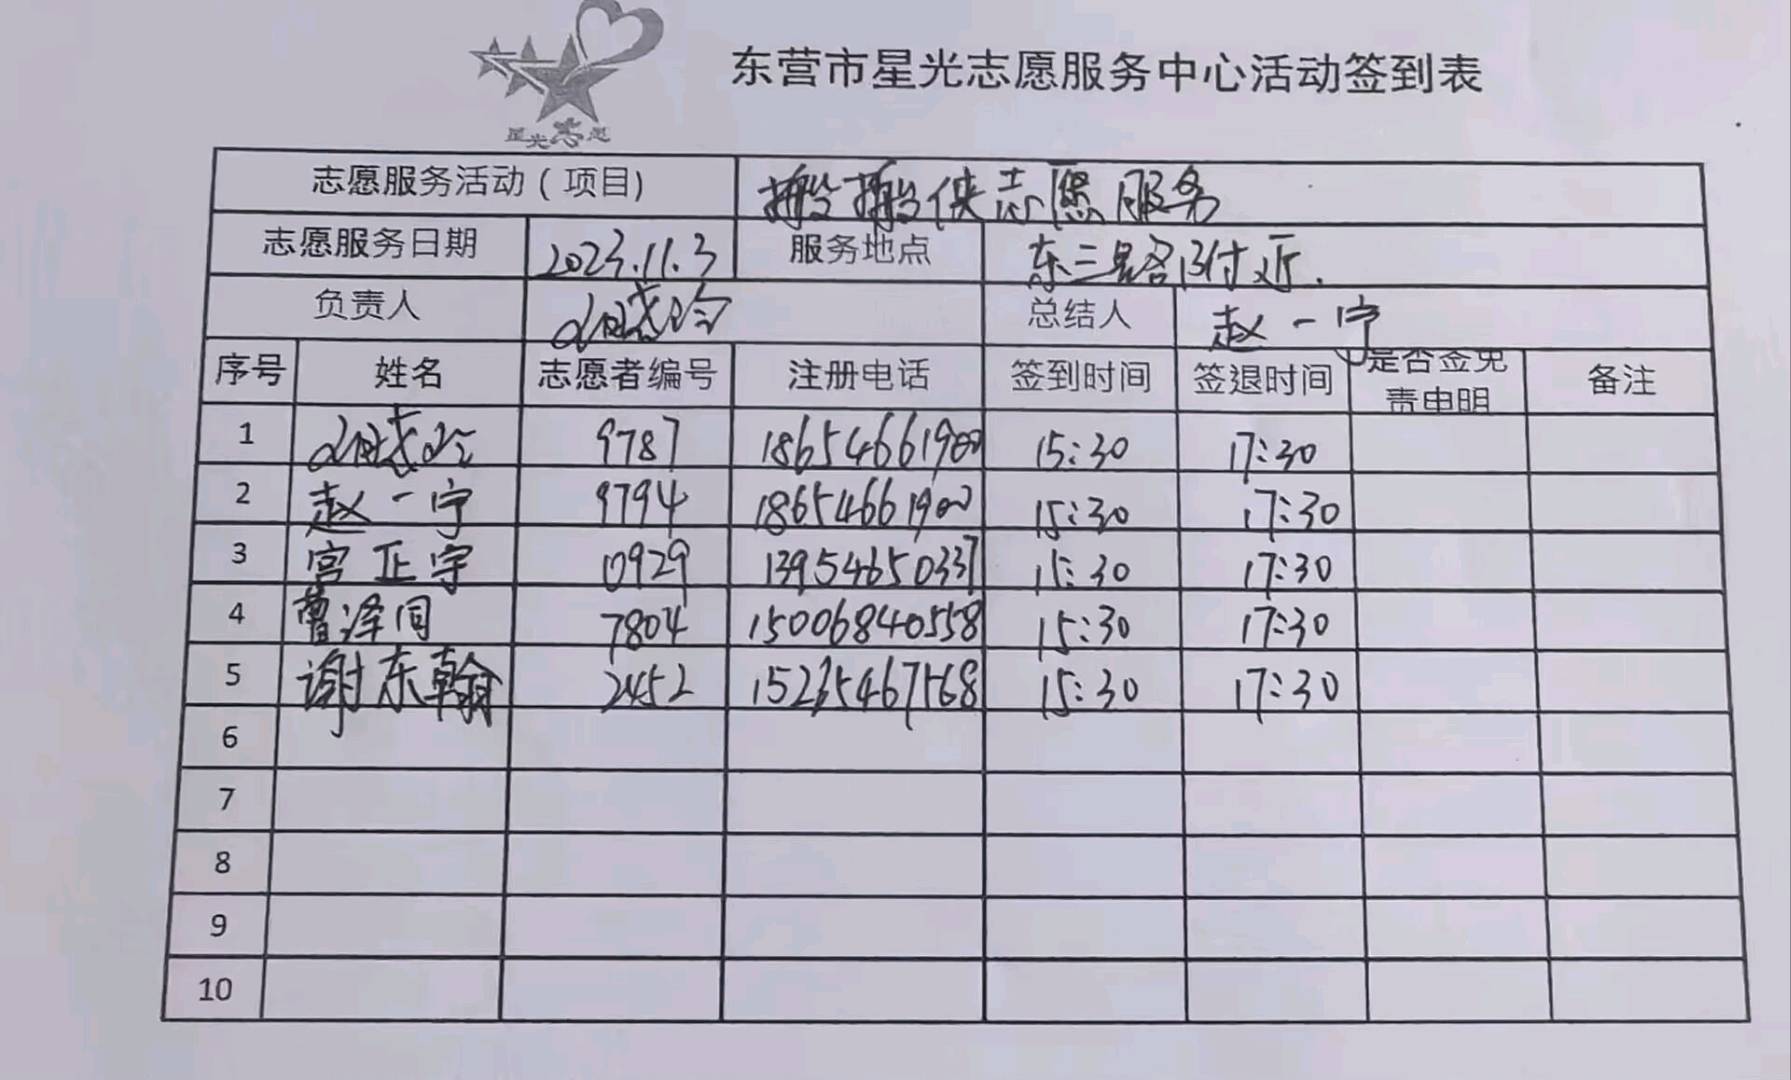 星光志愿
东营市星光志愿服务中心活动签到表
志愿服务活动（项目） 搬搬侠志愿服务
志愿服务日期 2023.11.3 服务地点 东三路附近.
负责人 总结人 赵一宁
序号 姓名 志愿者编号 注册电话 签到时间 签退时间 是否签免责申明 备注
1 9787 18654661900 15:30 17:30
2 赵一宁 9794 18654661900 15:30 17:30
3 宫正宇 0929 13954650337 15:30 17:30
4 曹泽同 7804 15006840558 15:30 17:30
5 谢东翰 2452 15235467568 15:30 17:30
6
7
8
9
10